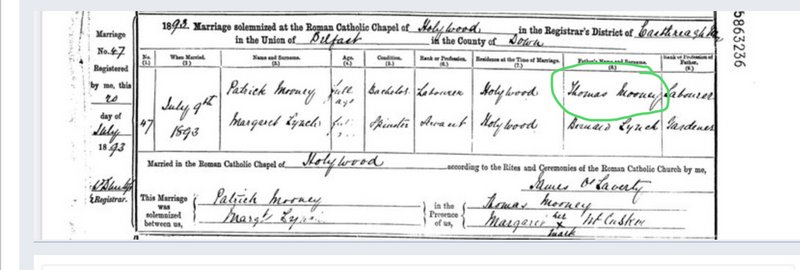 1893. Marriage solemnized at the Roman Catholic Chapel of Holywood in the Registrar's District of Castlereagh
in the Union of Belfast in the County of Down
5863236
Marriage
No. 47
Registered
by me, this
20
day of
July
1893
Registrar.
No. (1.) When Married. (2.) Name and Surname. (3.) Age. (4.) Condition. (5.) Rank or Profession. (6.) Residence at the Time of Marriage. (7.) Father's Name and Surname. (8.) Rank or Profession of Father. (9.)
47 July 9th 1893
Patrick Mooney full age Bachelor Labourer Holywood Thomas Mooney Labourer
Margaret Lynch full Spinster Servant Holywood Bernard Lynch Gardener
Married in the Roman Catholic Chapel of Holywood according to the Rites and Ceremonies of the Roman Catholic Church by me,
James O'Laverty
This Marriage was solemnized between us,
Patrick Mooney
Margt Lynch
in the Presence of us,
Thomas Mooney
Margaret her x mark McCusker